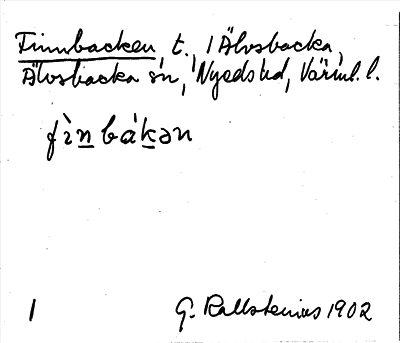 Finnbacken, t., 1 Älvsbacka,
Älvsbacka sn, Nyeds hd, Värml. l.
fìnbákən
1 G. Kallstenius 1902